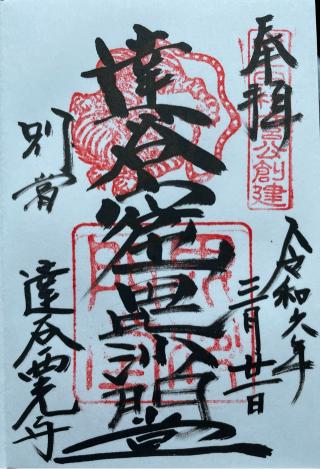 奉拝
令和六年
三月廿一日
達谷窟毘沙門堂
別當
達谷西光寺